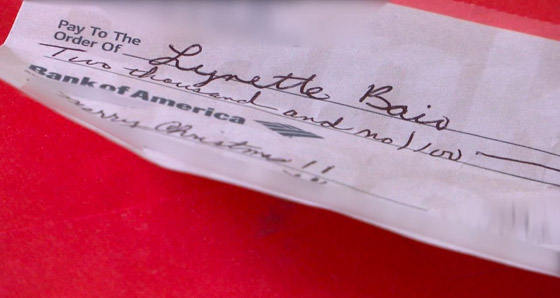 Pay To The
Order Of Lynette Baio
Two thousand and no/100
Bank of America
Merry Christmas!!